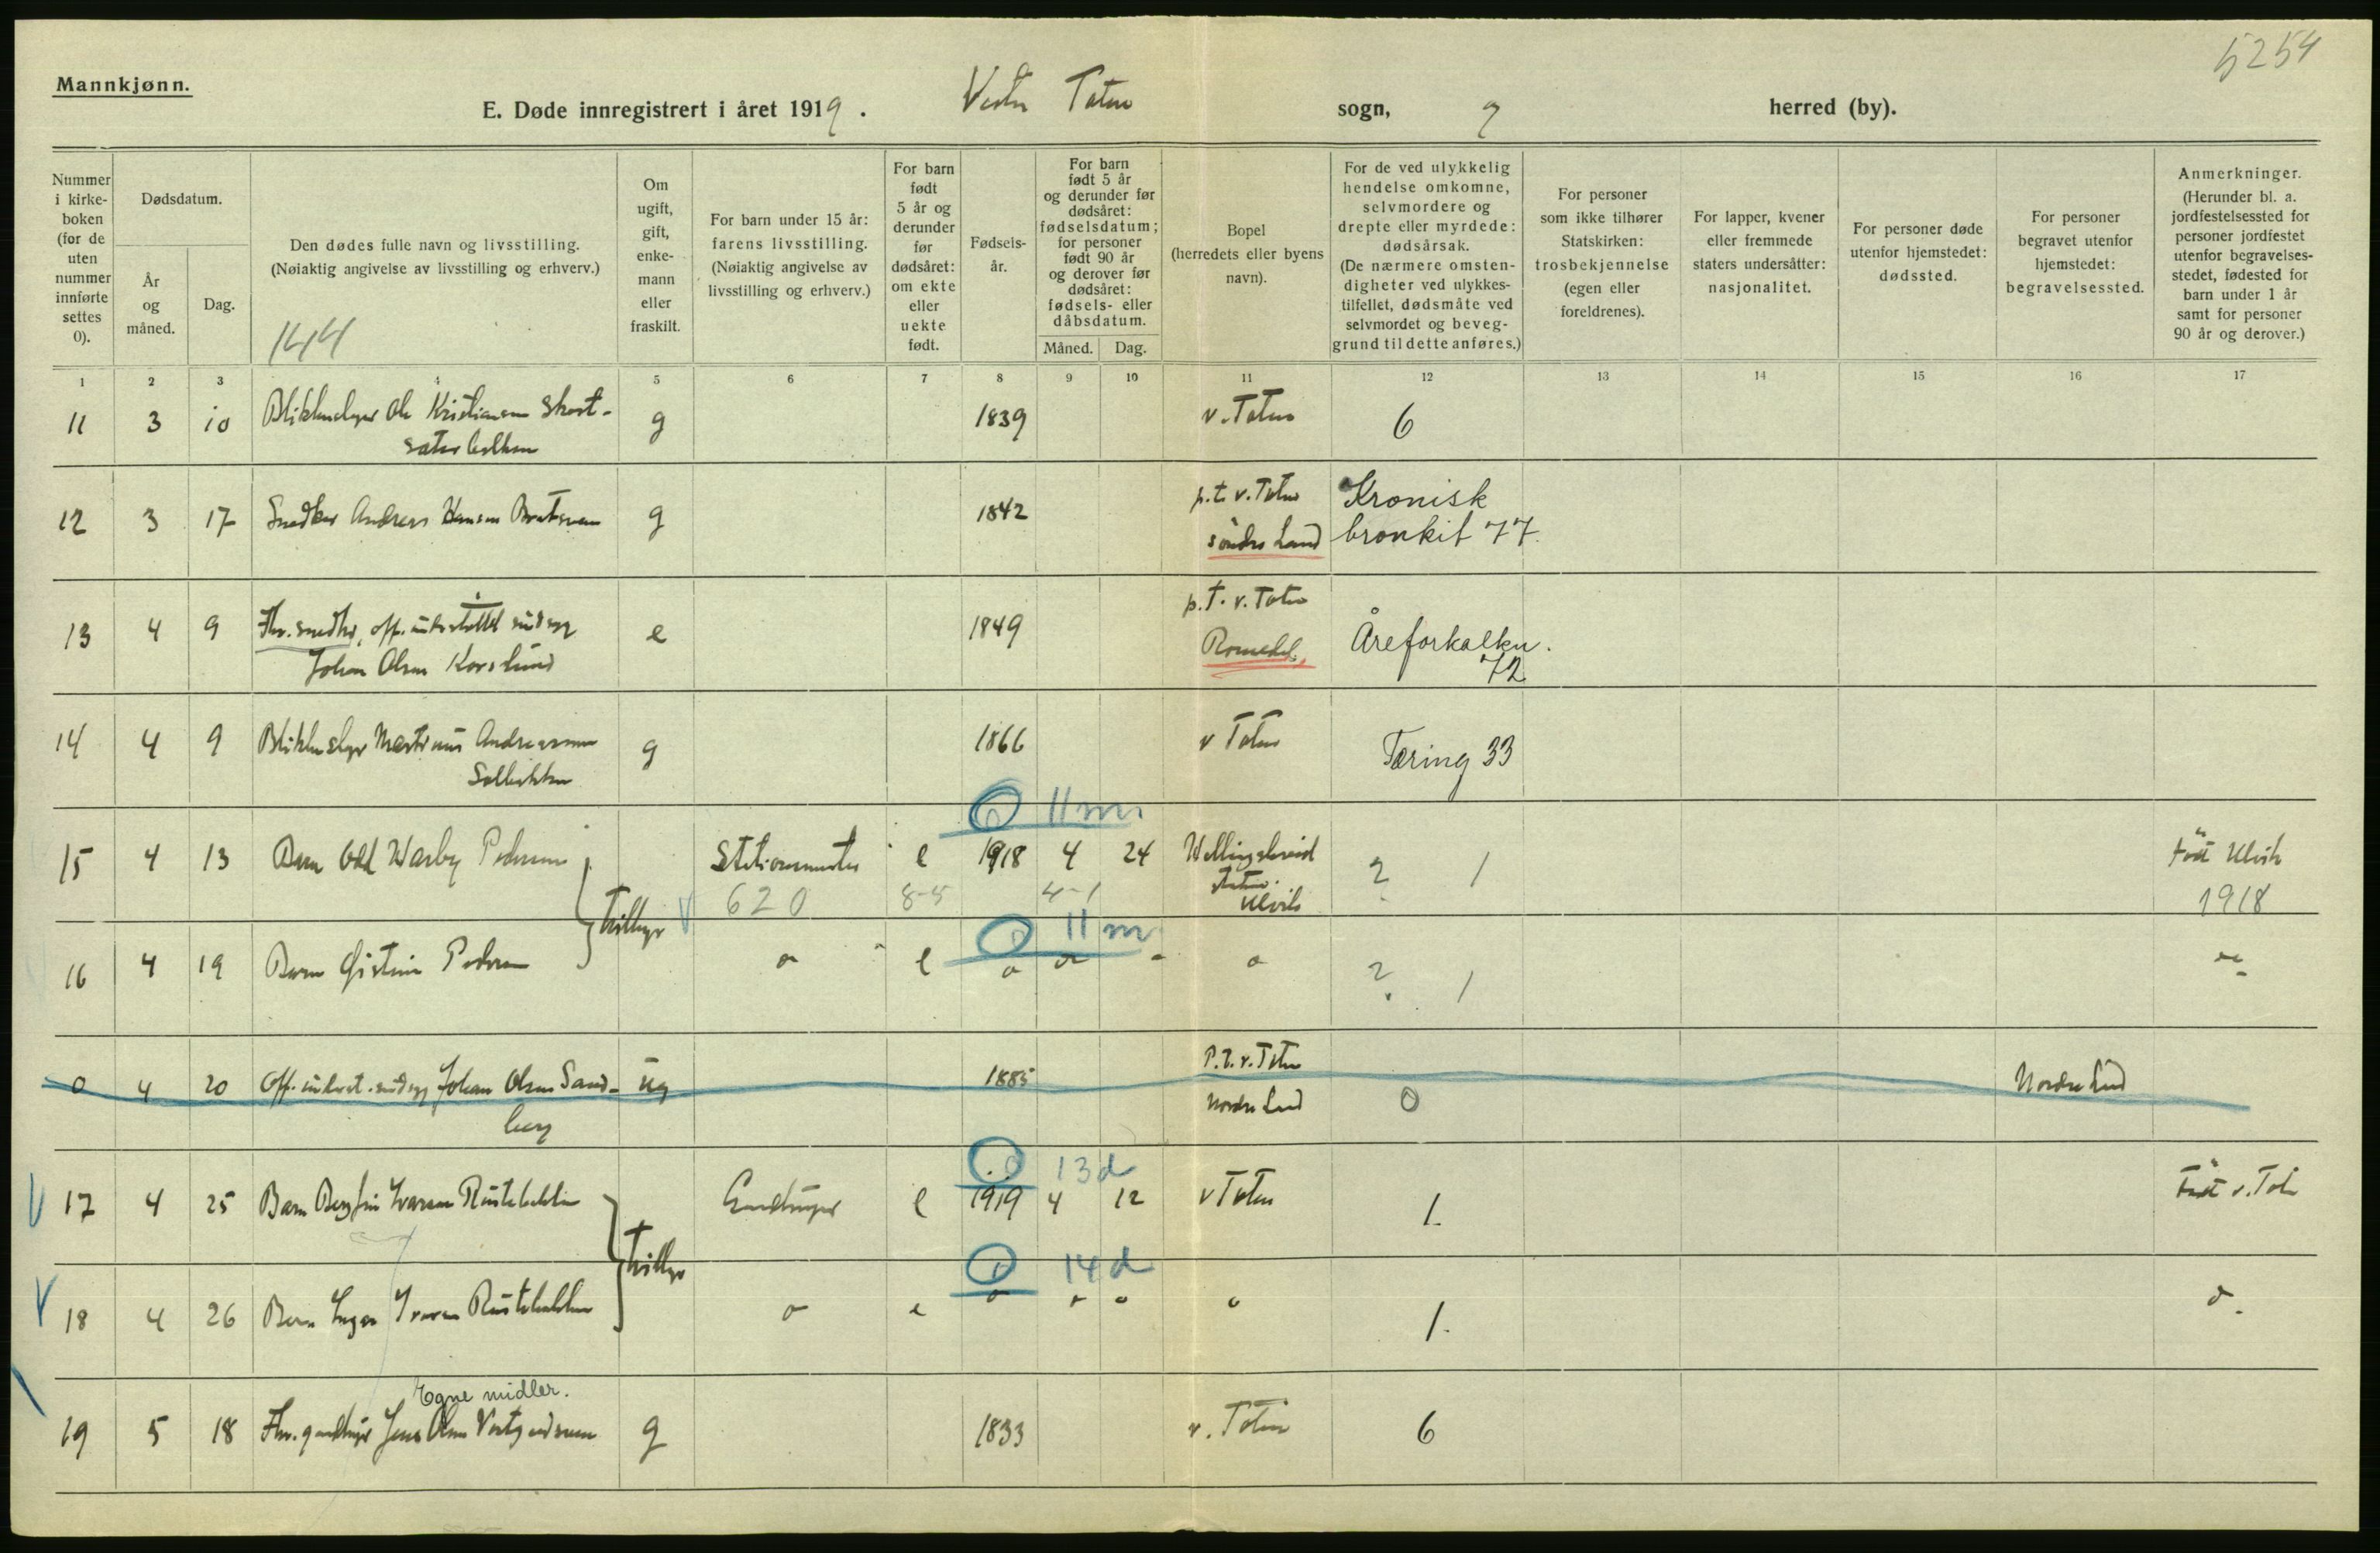 5254
Mannkjønn.
E. Døde innregistrert i året 1919. Vestre Toten sogn, herred (by).
Nummer i kirke-boken (for de uten nummer innførte settes 0).
Dødsdatum.
År og måned.
Dag.
Den dødes fulle navn og livsstilling. (Nøiaktig angivelse av livsstilling og erhverv.)
144
Om ugift, gift, enke-mann eller fraskilt.
For barn under 15 år: farens livsstilling. (Nøiaktig angivelse av livsstilling og erhverv.)
For barn født 5 år og derunder før dødsåret: om ekte eller uekte født.
Fødsels-år.
For barn født 5 år og derunder før dødsåret: fødselsdatum; for personer født 90 år og derover før dødsåret: fødsels- eller dåbsdatum.
Måned. Dag.
Bopel (herredets eller byens navn).
For de ved ulykkelig hendelse omkomne, selvmordere og drepte eller myrdede: dødsårsak. (De nærmere omsten-digheter ved ulykkes-tilfellet, dødsmåte ved selvmordet og beveg-grund til dette anføres.)
For personer som ikke tilhører Statskirken: trosbekjennelse (egen eller foreldrenes).
For lapper, kvener eller fremmede staters undersåtter: nasjonalitet.
For personer døde utenfor hjemstedet: dødssted.
For personer begravet utenfor hjemstedet: begravelsessted.
Anmerkninger. (Herunder bl. a. jordfestelsessted for personer jordfestet utenfor begravelses-stedet, fødested for barn under 1 år samt for personer 90 år og derover.)
1 2 3 4 5 6 7 8 9 10 11 12 13 14 15 16 17
11 3 10 Ole Kristiansen g 1839 v. Toten 6
12 3 17 Snedker Andreas Hansen g 1842 p.t. v. Toten Kronisk
søndre Land bronkit 77.
13 4 9 Fhv. snedker, off. understøttet e 1849 p.t. v. Toten
Johan Olsen Korslund Romedal. Åreforkalkn. 72
14 4 9 Martinus Andreassen g 1866 v Toten Tæring 33
0 11 m.
15 4 13 Barn Odd Warby Pedersen Stationsmester e 1918 4 24 ? 1 Født Ulvik
Ulvik
Tvillinger V 620 8-5 4-1 1918
0 11 m
16 4 19 Barn Øistein Pedersen e ? 1
0 4 20 Off. underst. Johan Olsen Sand- ug 1885 P.t. v. Toten Nordre Land
berg Nordre Land 0
0 13 d
V 17 4 25 Barn Bergfin Ivarsen Gårdbruger e 1919 4 12 v Toten 1. Født v. Toten
0 14 d
V 18 4 26 Barn Inger Ivarsen Tvillinger e 1.
Egne midler.
19 5 18 Fhv. gårdbruger Jens Olsen g 1833 v. Toten 6